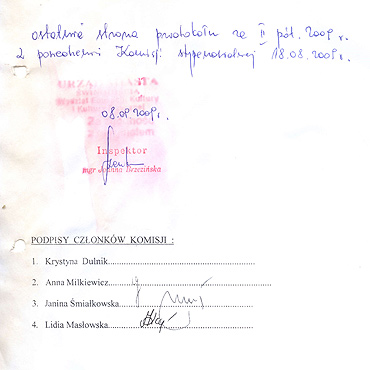 ostatnia strona protokołu za II pół. 2009 r.
z posiedzenia Komisji stypendialnej 18.08.2009r.
URZĄD MIASTA
08.09.2009r.
Inspektor
mgr Joanna Brzezińska
PODPISY CZŁONKÓW KOMISJI :
1. Krystyna Dulnik
2. Anna Milkiewicz
3. Janina Śmiałkowska
4. Lidia Masłowska